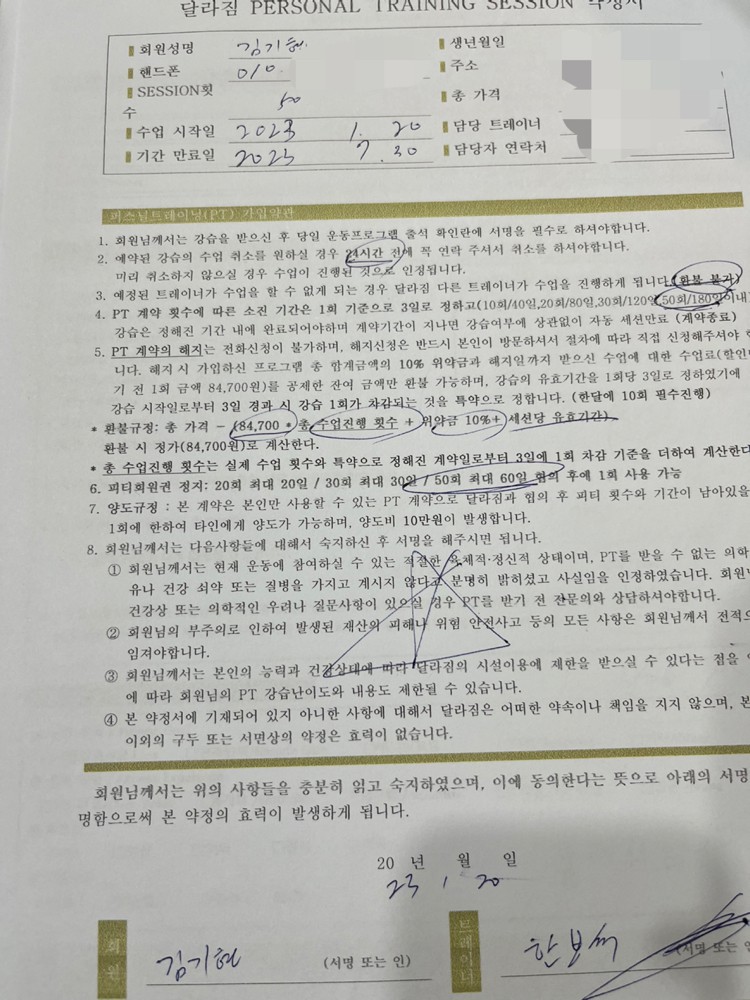 달라짐 PERSONAL TRAINING SESSION 약정서
회원성명 김기현 생년월일
핸드폰 010 주소
SESSION횟수 50 총 가격
수업 시작일 2023 1. 20 담당 트레이너
기간 만료일 2023 7. 30 담당자 연락처
퍼스널트레이닝(PT) 가입약관
1. 회원님께서는 강습을 받으신 후 당일 운동프로그램 출석 확인란에 서명을 필수로 하셔야합니다.
2. 예약된 강습의 수업 취소를 원하실 경우 24시간 전에 꼭 연락 주셔서 취소를 하셔야합니다.
미리 취소하지 않으실 경우 수업이 진행된 것으로 인정됩니다.
3. 예정된 트레이너가 수업을 할 수 없게 되는 경우 달라짐 다른 트레이너가 수업을 진행하게 됩니다.(환불 불가)
4. PT 계약 횟수에 따른 소진 기간은 1회 기준으로 3일로 정하고(10회/40일,20회/80일,30회/120일,50회/180일이내)
강습은 정해진 기간 내에 완료되어야하며 계약기간이 지나면 강습여부에 상관없이 자동 세션만료 (계약종료)
5. PT 계약의 해지는 전화신청이 불가하며, 해지신청은 반드시 본인이 방문하셔서 절차에 따라 직접 신청해주셔야
니다. 해지 시 가입하신 프로그램 총 합계금액의 10% 위약금과 해지일까지 받으신 수업에 대한 수업료(할인
기 전 1회 금액 84,700원)를 공제한 잔여 금액만 환불 가능하며, 강습의 유효기간을 1회당 3일로 정하였기에
강습 시작일로부터 3일 경과 시 강습 1회가 차감되는 것을 특약으로 정합니다. (한달에 10회 필수진행)
* 환불규정: 총 가격 - (84,700 * 총 수업진행 횟수 + 위약금 10%+ 세션당 유효기간)
환불 시 정가(84,700원)로 계산한다.
* 총 수업진행 횟수는 실제 수업 횟수와 특약으로 정해진 계약일로부터 3일에 1회 차감 기준을 더하여 계산한다
6. 피티회원권 정지: 20회 최대 20일 / 30회 최대 30일 / 50회 최대 60일 협의 후에 1회 사용 가능
7. 양도규정 : 본 계약은 본인만 사용할 수 있는 PT 계약으로 달라짐과 협의 후 피티 횟수와 기간이 남아있을
1회에 한하여 타인에게 양도가 가능하며, 양도비 10만원이 발생합니다.
8. 회원님께서는 다음사항들에 대해서 숙지하신 후 서명을 해주시면 됩니다.
① 회원님께서는 현재 운동에 참여하실 수 있는 적절한 육체적·정신적 상태이며, PT를 받을 수 없는 의학
유나 건강 쇠약 또는 질병을 가지고 계시지 않다고 분명히 밝히셨고 사실임을 인정하였습니다. 회원
건강상 또는 의학적인 우려나 질문사항이 있으실 경우 PT를 받기 전 전문의와 상담하셔야합니다.
② 회원님의 부주의로 인하여 발생된 재산의 피해나 위험 안전사고 등의 모든 사항은 회원님께서 전적으
임져야합니다.
③ 회원님께서는 본인의 능력과 건강상태에 따라 달라짐의 시설이용에 제한을 받으실 수 있다는 점을
에 따라 회원님의 PT 강습난이도와 내용도 제한될 수 있습니다.
④ 본 약정서에 기재되어 있지 아니한 사항에 대해서 달라짐은 어떠한 약속이나 책임을 지지 않으며, 본
이외의 구두 또는 서면상의 약정은 효력이 없습니다.
회원님께서는 위의 사항들을 충분히 읽고 숙지하였으며, 이에 동의한다는 뜻으로 아래의 서명
명함으로써 본 약정의 효력이 발생하게 됩니다.
20 년 월 일
23 1 20
회원 김기현 (서명 또는 인) 트레이너 한보석 (서명 또는 인